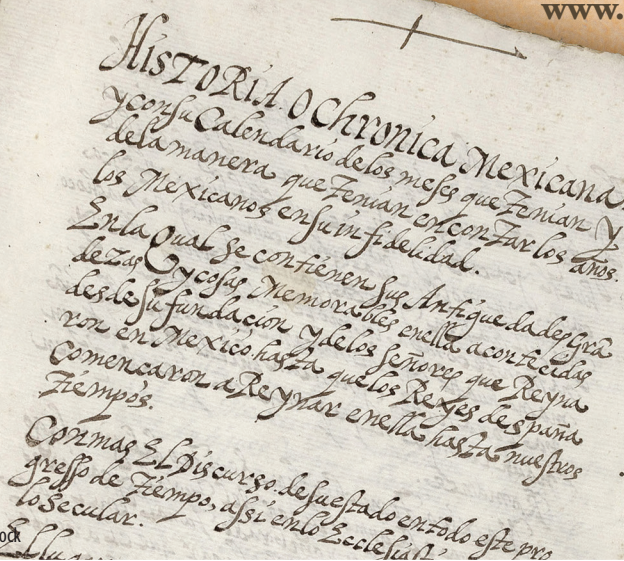 www.
HISTORIA O Chronica Mexicana
y con su Calendario de los meses que tenian y
de la manera que tenian en contar los años
los Mexicanos en su infidelidad.
En la Qual se contienen sus Antiguedades Grã
dezas y cosas Memorables enella acontecidas
desde su fundacion y de los señores que Reyna
ron en Mexico hasta que los Reyes despaña
Comencaron a Reynar enella hasta nuestros
tiempos.
Con mas El Discurso de su estado en todo este pro
gresso de tiempo, assi en lo Ecclesiasti
lo secular.
ock